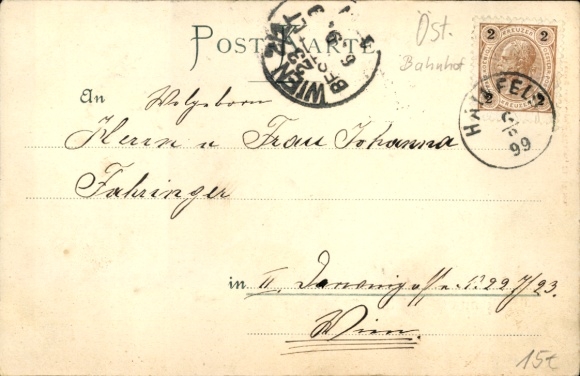 POST KARTE
Öst.
Bahnhof
2 KREUZER 2
2 2
WIEN
BESTELLT
HAINFELD
99
An Wolgeborn
Herrn u Frau Johanna
Fahringer
in II,
Wien.
15€